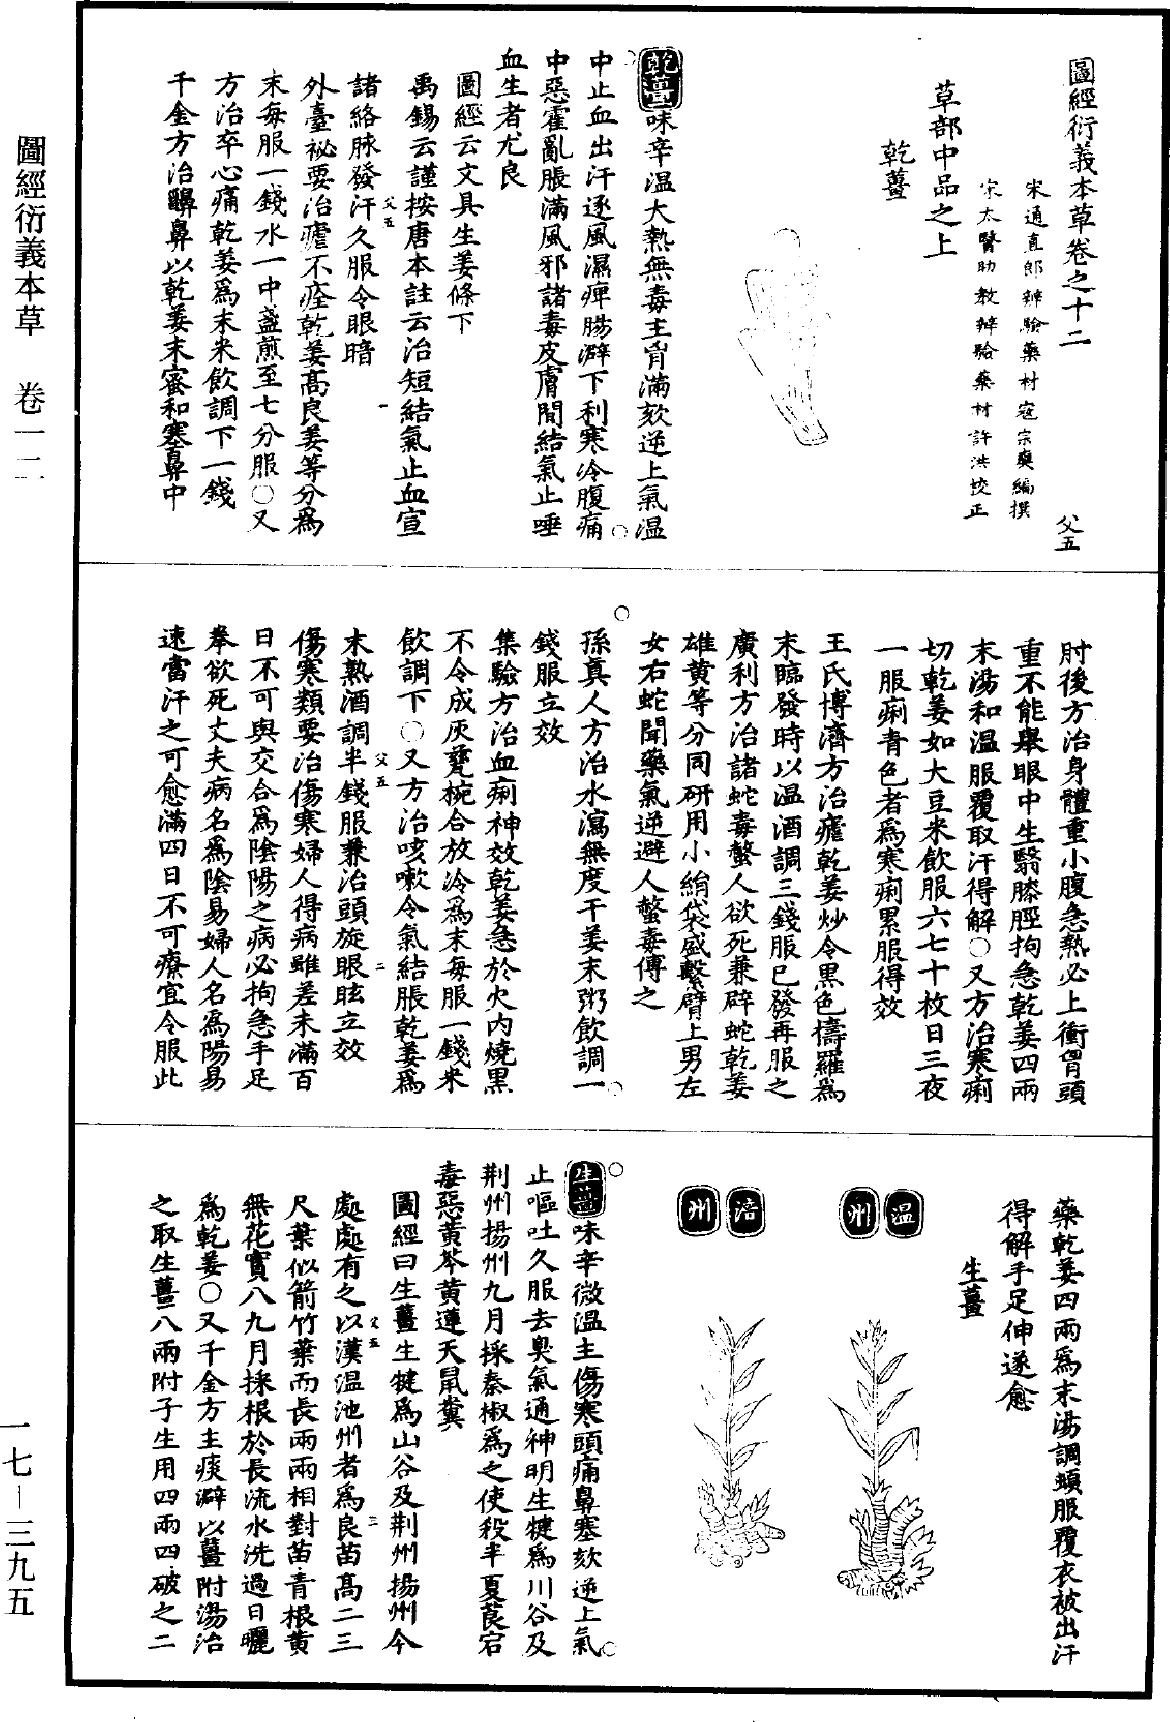 圖經衍義本草卷之十二　父五
宋通直郎辨驗藥材寇宗奭編撰
宋太醫助教辨驗藥材許洪校正
草部中品之上
乾薑
乾薑味辛溫大熱無毒主胷滿欬逆上氣溫
中止血出汗逐風濕痺腸澼下利寒冷腹痛
中惡霍亂脹滿風邪諸毒皮膚間結氣止唾
血生者尤良
圖經云文具生姜條下
禹錫云謹按唐本註云治短結氣止血宣
父五
諸絡脉發汗久服令眼暗
一
外臺秘要治瘧不痊乾姜高良姜等分爲
末每服一錢水一中盞煎至七分服○又
方治卒心痛乾姜爲末米飲調下一錢
千金方治齆鼻以乾姜末蜜和塞鼻中
肘後方治身體重小腹急熱必上衝胷頭
重不能舉眼中生翳膝脛拘急乾姜四兩
末湯和溫服覆取汗得解○又方治寒痢
切乾姜如大豆米飲服六七十枚日三夜
一服痢青色者爲寒痢累服得效
王氏博濟方治瘧乾姜炒令黑色擣羅爲
末臨發時以溫酒調三錢服已發再服之
廣利方治諸蛇毒螫人欲死兼辟蛇乾姜
雄黄等分同研用小絹袋盛繫臂上男左
女右蛇聞藥氣逆避人螫毒傅之
孫真人方治水瀉無度干姜末粥飲調一
錢服立效
集驗方治血痢神效乾姜急於火内燒黑
不令成灰甆椀合放冷爲末每服一錢米
飲調下○又方治咳嗽令氣結脹乾姜爲
父五
末熟酒調半錢服兼治頭旋眼眩立效
二
傷寒類要治傷寒婦人得病雖差未滿百
日不可與交合爲陰陽之病必拘急手足
拳欲死丈夫病名爲陰易婦人名爲陽易
速當汗之可愈滿四日不可療宜令服此
藥乾姜四兩爲末湯調頓服覆衣被出汗
得解手足伸遂愈
生薑
溫州
涪州
生薑味辛微溫主傷寒頭痛鼻塞欬逆上氣
止嘔吐久服去臭氣通神明生犍爲川谷及
荆州揚州九月採秦椒爲之使殺半夏莨宕
毒惡黄芩黄蓮天鼠糞
圖經曰生薑生犍爲山谷及荆州揚州今
父五
處處有之以漢溫池州者爲良苗高二三
三
尺葉似箭竹葉而長兩兩相對苗青根黄
無花實八九月採根於長流水洗過日曬
爲乾姜○又千金方主痰澼以薑附湯治
之取生薑八兩附子生用四兩四破之二
圖經衍義本草　卷一二
一七－三九五